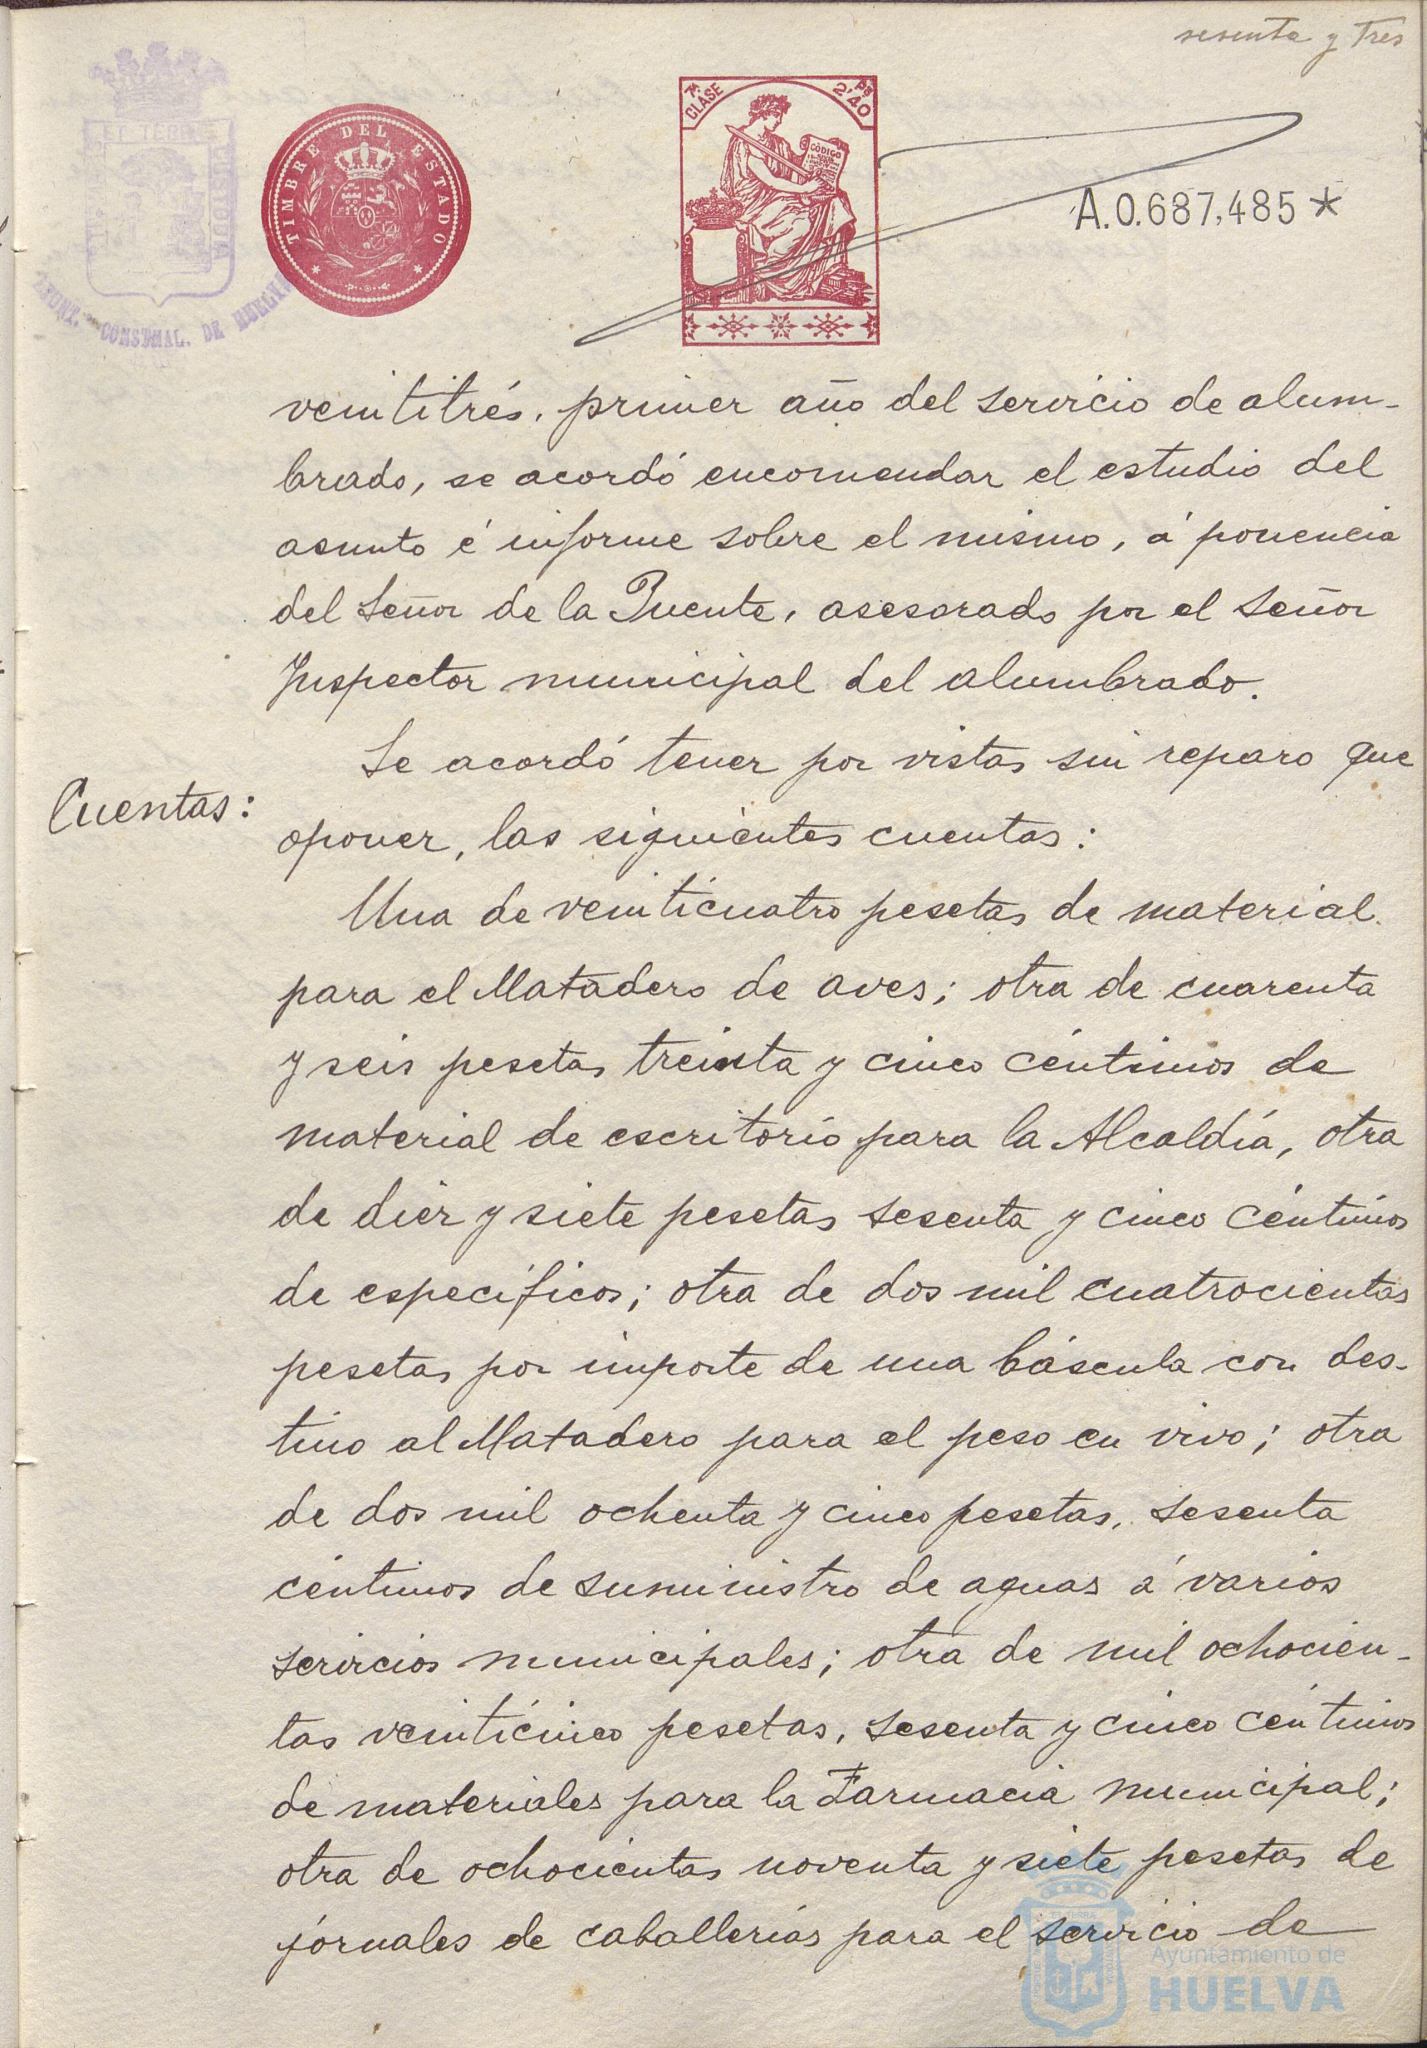 sesenta y tres
TIMBRE DEL ESTADO
7ª CLASE
2'40 Ps
CÓDIGO
A.0.687,485*
CONSTNAL. DE HUELVA
veintitrés, primer año del servicio de alum-
brado, se acordó encomendar el estudio del
asunto é informe sobre el mismo, á ponencia
del Señor de la Puente, asesorado por el Señor
Inspector municipal del alumbrado.
Cuentas:
Se acordó tener por vistas sin reparo que
oponer, las siguientes cuentas:
Una de veinticuatro pesetas de material
para el Matadero de aves; otra de cuarenta
y seis pesetas treinta y cinco céntimos de
material de escritorio para la Alcaldía, otra
de diez y siete pesetas sesenta y cinco céntimos
de específicos; otra de dos mil cuatrocientas
pesetas por importe de una báscula con des-
tino al Matadero para el peso en vivo; otra
de dos mil ochenta y cinco pesetas, sesenta
céntimos de suministro de aguas á varios
servicios municipales; otra de mil ochocien-
tas veinticinco pesetas, sesenta y cinco céntimos
de materiales para la Farmacia municipal;
otra de ochocientas noventa y siete pesetas de
jornales de caballerías para el servicio de
Ayuntamiento de
HUELVA